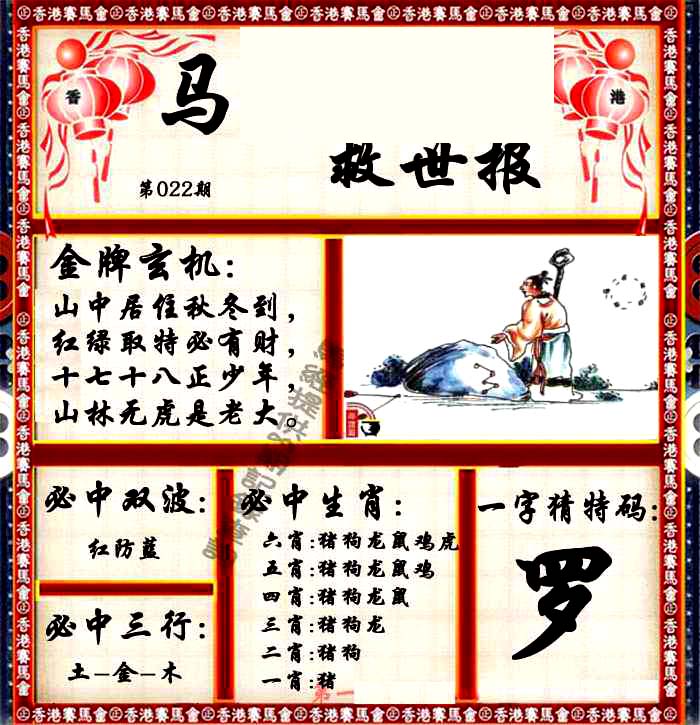 香港賽馬會㊣香港賽馬會㊣香港賽馬會㊣香港賽馬會㊣香港賽馬會㊣香港賽馬會㊣香港賽馬會
香
马
港
救世报
第022期
金牌玄机:
山中居住秋冬到,
红绿取特必有财,
十七十八正少年,
山林无虎是老大。
必中双波:
红防蓝
必中三行:
土-金-木
必中生肖:
六肖:猪狗龙鼠鸡虎
五肖:猪狗龙鼠鸡
四肖:猪狗龙鼠
三肖:猪狗龙
二肖:猪狗
一肖:猪
第一
一字猜特码:
罗